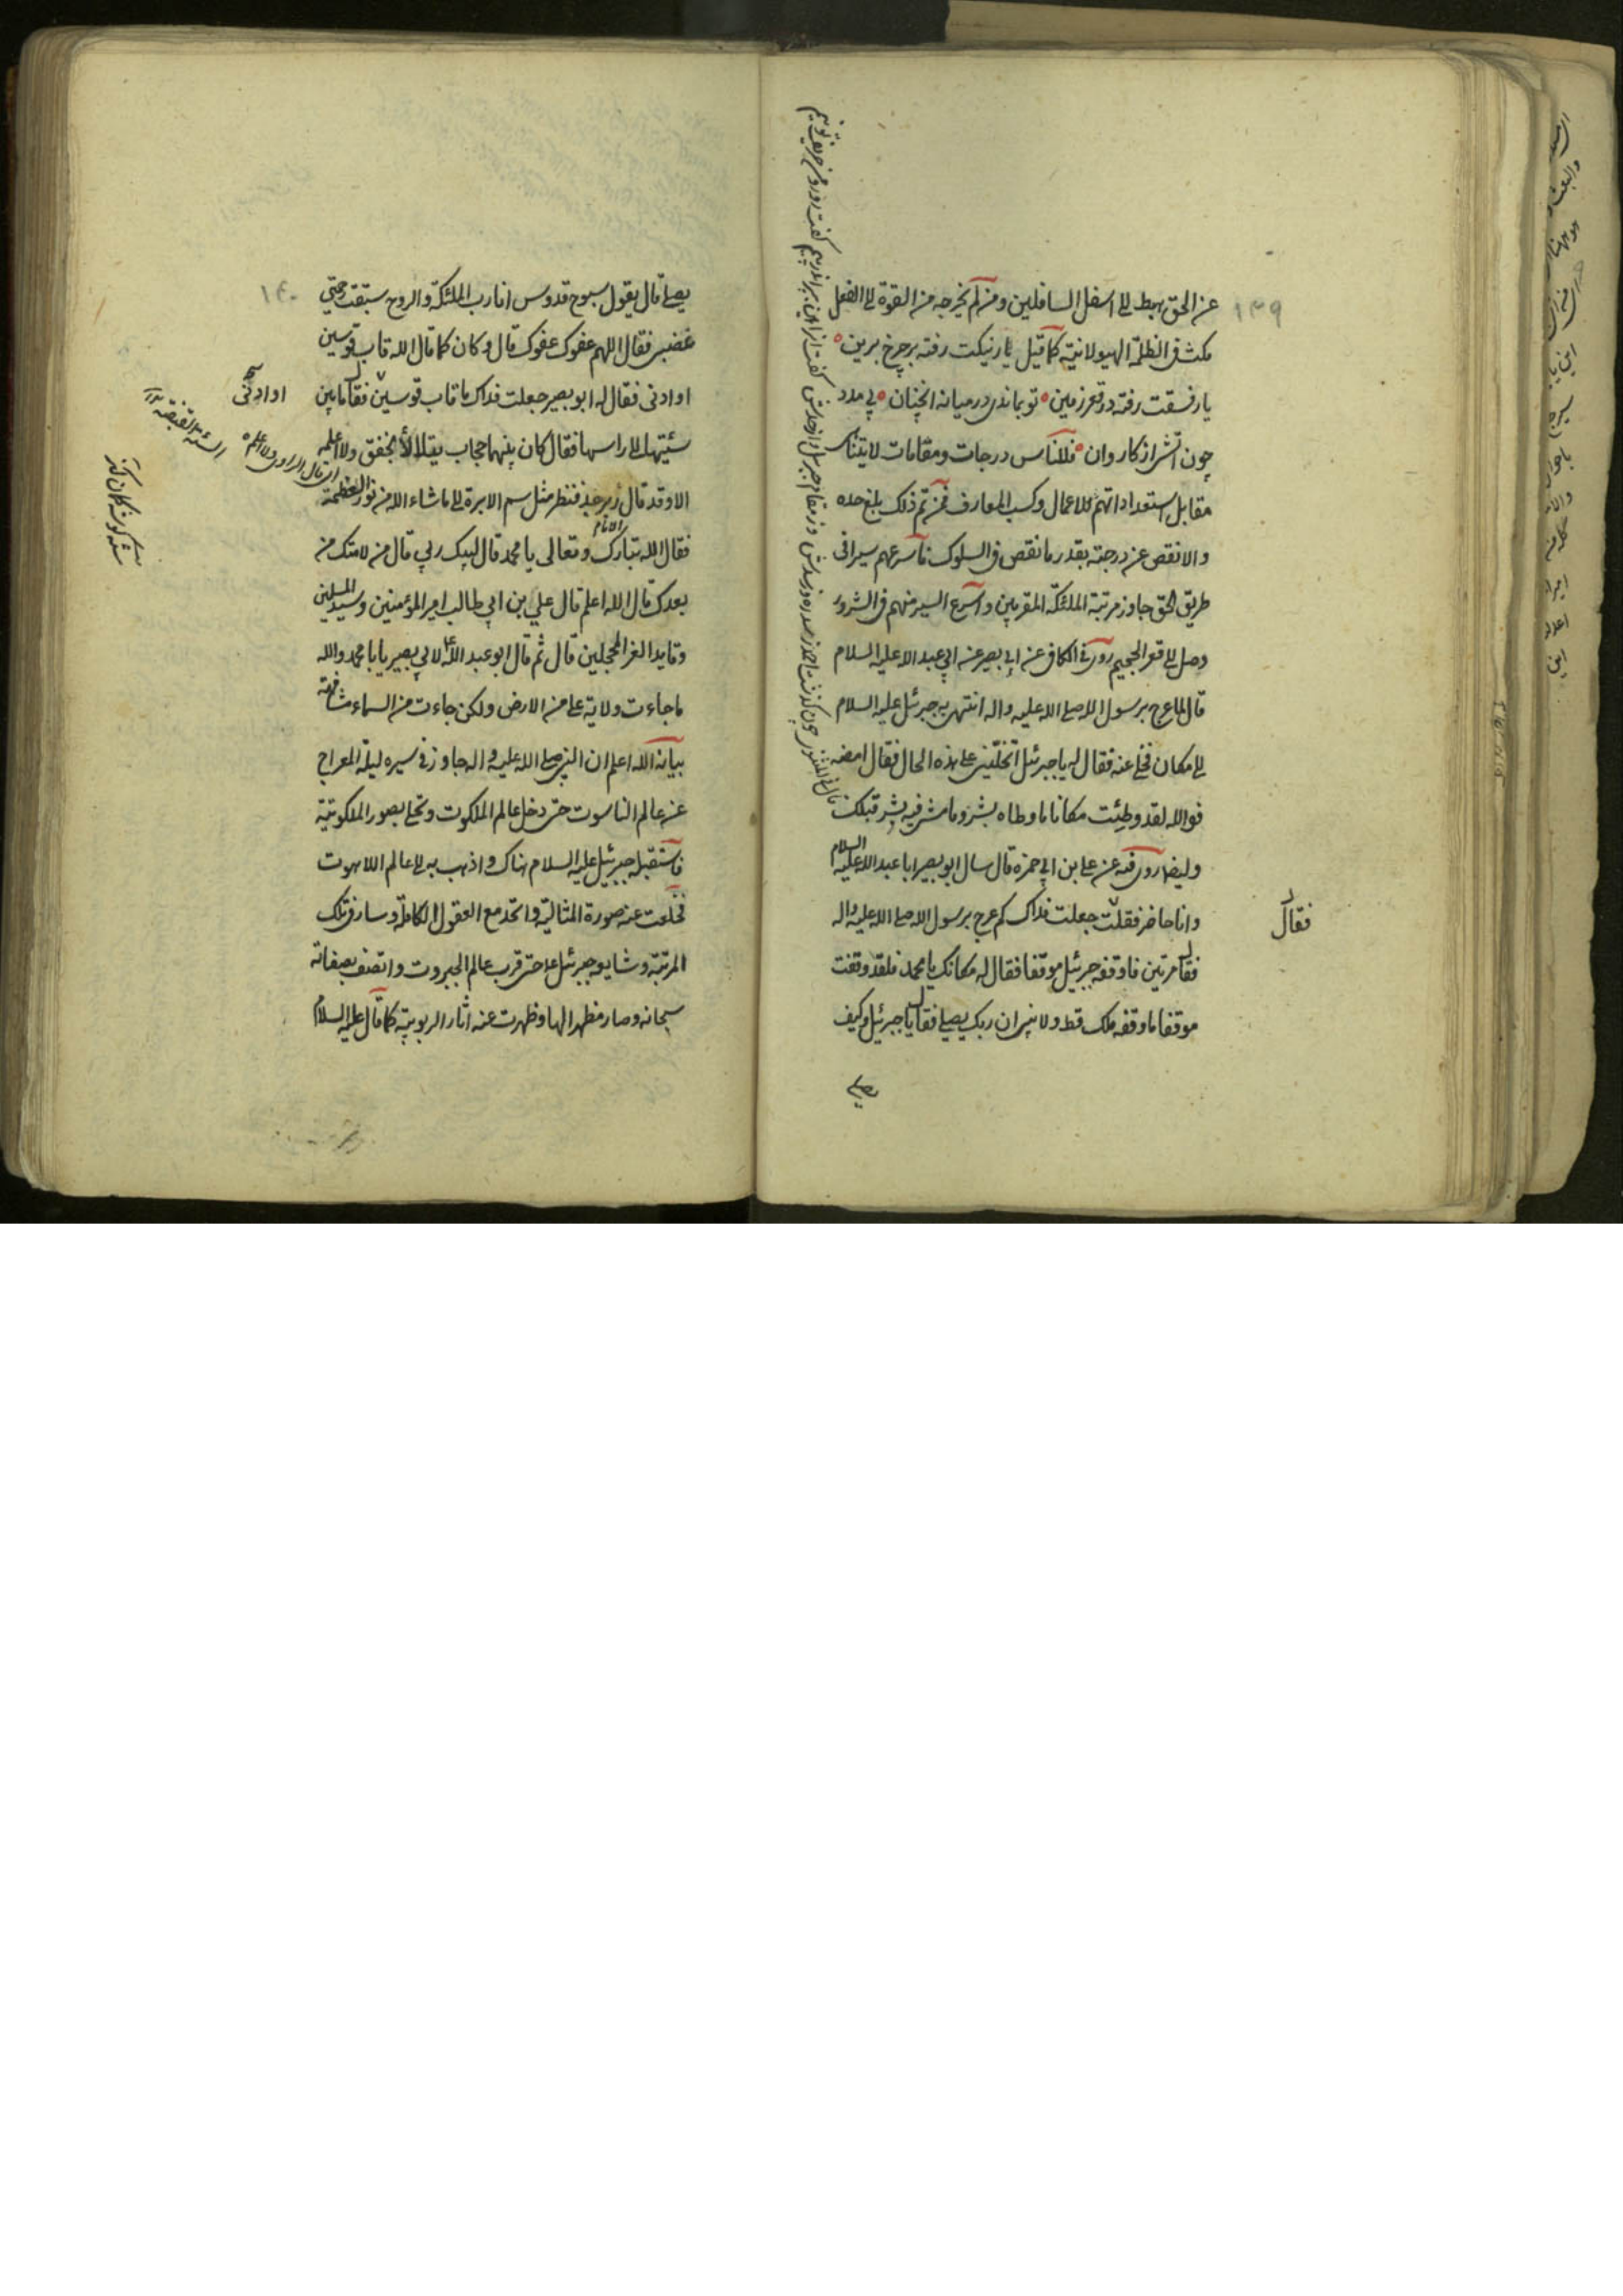 ١٣٩
عن الحق يهبط الى اسفل السافلين ومن لم يخرجه من القوة الى الفعل
مكث فى الظلمة الهيولانية كما قيل يار نيكت رفته بر چرخ برين
يار فسقت رفته در قعر زمين تو بماندى در ميانه انچنان بى مدد
چون آتش از كاروان فللناس درجات ومقامات لا يتناى
مقابل استعداداتهم للاعمال وكسب المعارف فمن تم ذلك بلغ حده
والا نقص عن درجته بقدر ما نقص فى السلوك فاسرعهم سيرا فى
طريق الحق جاوز مرتبة الملئكة المقربين واسرع السير منهم فى الشرور
وصل الى قعر الجحيم روى فى الكافى عن ابى بصير عن ابى عبد الله عليه السلام
قال لما عرج برسول الله صلى الله عليه واله انتهى به جبرئيل عليه السلام
الى مكان فخلى عنه فقال له يا جبرئيل اتخلّينى على هذه الحال فقال امضه
فوالله لقد وطئت مكانا ما وطاه بشر وما مشى فيه بشر قبلك
وايضا روى فيه عن على بن ابى حمزه قال سال ابو بصير ابا عبد الله عليه السلام
وانا حاضر فقلت جعلت فداك كم عرج برسول الله صلى الله عليه واله
فقال
فقال مرتين فاوقفه جبرئيل موقفا فقال له مكانك يا محمد فلقد وقفت
موقفا ما وقفه ملك قط ولا نبى ان ربك يصلى فقال يا جبرئيل وكيف
يصلى
١٤٠
يصلى قال يقول سبوح قدوس انا رب الملئكة والروح سبقت رحمتى
غضبى فقال اللهم عفوك عفوك قال وكان كما قال الله قاب قوسين
او ادنى فقال له ابو بصير جعلت فداك ما قاب قوسين او ادنى فقال ما بين
سيتها الى راسها فقال كان بينهما حجاب يتلالأ يخفق ولا اعلمه
الا وقد قال زبرجد فنظر مثل سم الابرة الى ما شاء الله من نور العظمة
فقال الله تبارك وتعالى يا محمد قال لبيك ربى قال من لامتك من
بعدك قال الله اعلم قال على بن ابى طالب امير المؤمنين وسيد المسلمين
وقايد الغر المحجلين قال ثم قال ابو عبد الله ع لابى بصير يا با محمد والله
ما جاءت ولاية على من الارض ولكن جاءت من السماء مشافهة
بيانه الله اعلم ان النبى صلى الله عليه واله جاوز فى سيره ليلة المعراج
عن عالم الناسوت حتى دخل عالم الملكوت وتحلى بصور الملكوتية
فاستقبله جبرئيل عليه السلام هناك واذهب به الى عالم اللاهوت
فخلعت عنه صورة المثالية واتحد مع العقول الكاملة وسار فى تلك
المرتبة وشايعه جبرئيل ع حتى قرب عالم الجبروت واتصف بصفاته
سبحانه وصار مظهرا لها وظهرت عنه اثار الربوبية كما قال عليه السلام